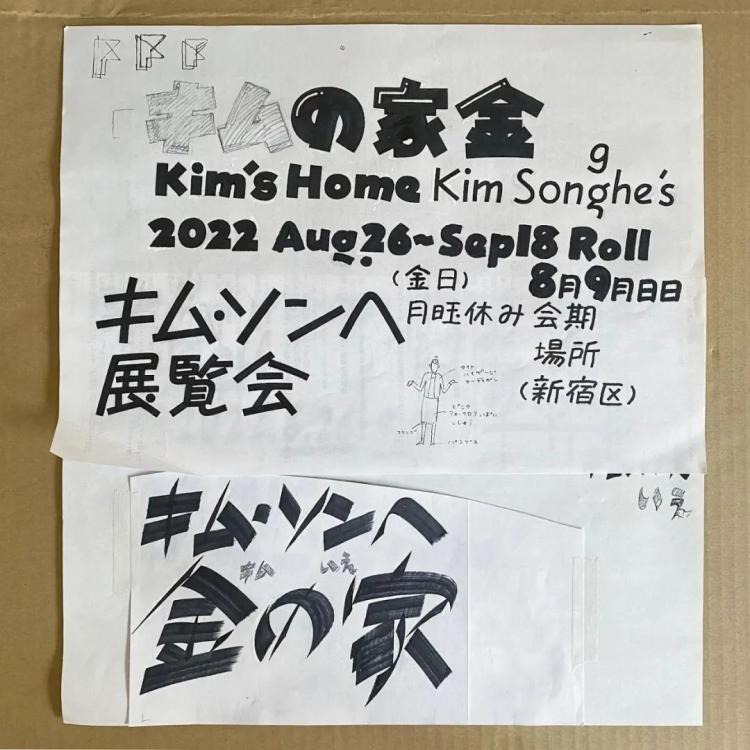 キムの家金
g
Kim's Home Kim Songhe's
2022 Aug.26~Sep18 Roll
8月9月日日
(金日)
キム・ソンヘ
月旺休み 会期
展覧会
場所
(新宿区)
いえ
キム・ソンヘ
キム いえ
金の家